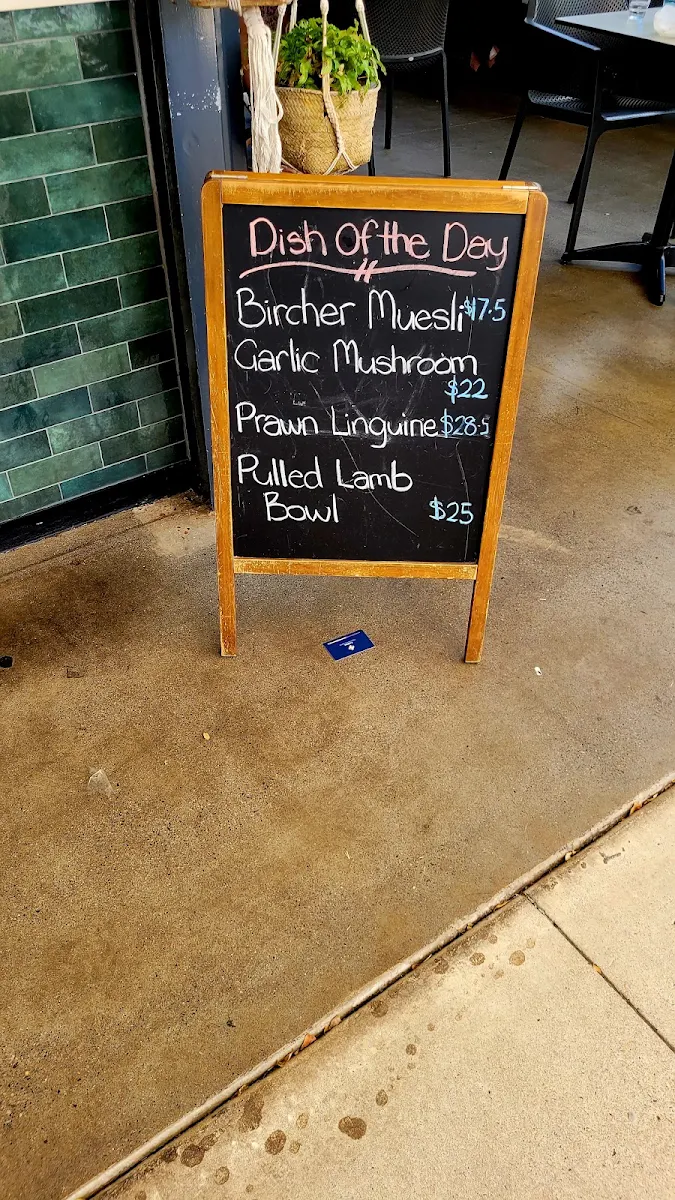 Dish Of the Day
Bircher Muesli $17.5
Garlic Mushroom
$22
Prawn Linguine $28.5
Pulled Lamb
Bowl $25